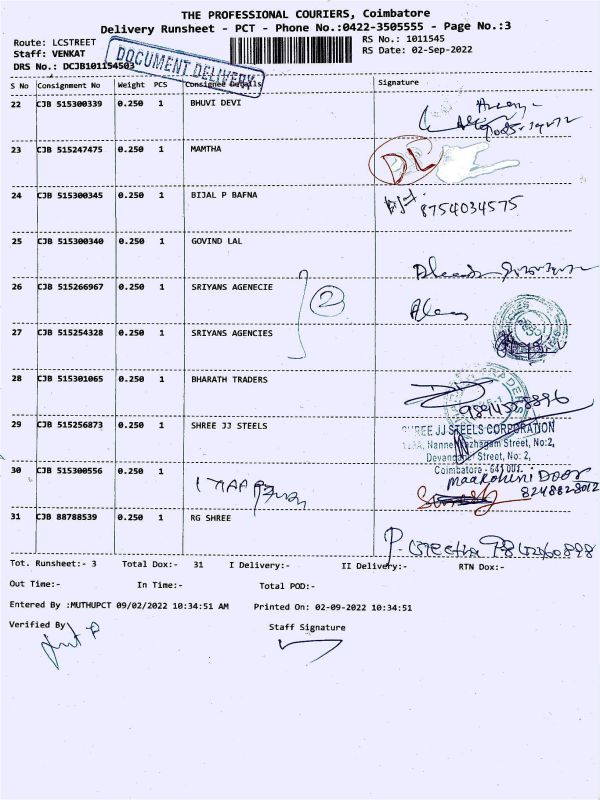 THE PROFESSIONAL COURIERS, Coimbatore
Delivery Runsheet - PCT - Phone No.:0422-3505555 - Page No.:3
Route: LCSTREET
RS No.: 1011545
Staff: VENKAT
RS Date: 02-Sep-2022
DRS No.: DCJB101154503
DOCUMENT DELIVERY
S No Consignment No Weight PCS Consignee Details Signature
22 CJB 515300339 0.250 1 BHUVI DEVI
23 CJB 515247475 0.250 1 MAMTHA
DL
24 CJB 515300345 0.250 1 BIJAL P BAFNA
8754034575
25 CJB 515300340 0.250 1 GOVIND LAL
26 CJB 515266967 0.250 1 SRIYANS AGENECIE
2
27 CJB 515254328 0.250 1 SRIYANS AGENCIES
28 CJB 515301065 0.250 1 BHARATH TRADERS
29 CJB 515256873 0.250 1 SHREE JJ STEELS
SHREE JJ STEELS CORPORATION
Street, No:2,
Street, No: 2,
Coimbatore - 641 001.
30 CJB 515300556 0.250 1
DOOR
8248828012
31 CJB 88788539 0.250 1 RG SHREE
Tot. Runsheet:- 3 Total Dox:- 31 I Delivery:- II Delivery:- RTN Dox:-
Out Time:- In Time:- Total POD:-
Entered By :MUTHUPCT 09/02/2022 10:34:51 AM Printed On: 02-09-2022 10:34:51
Verified By Staff Signature